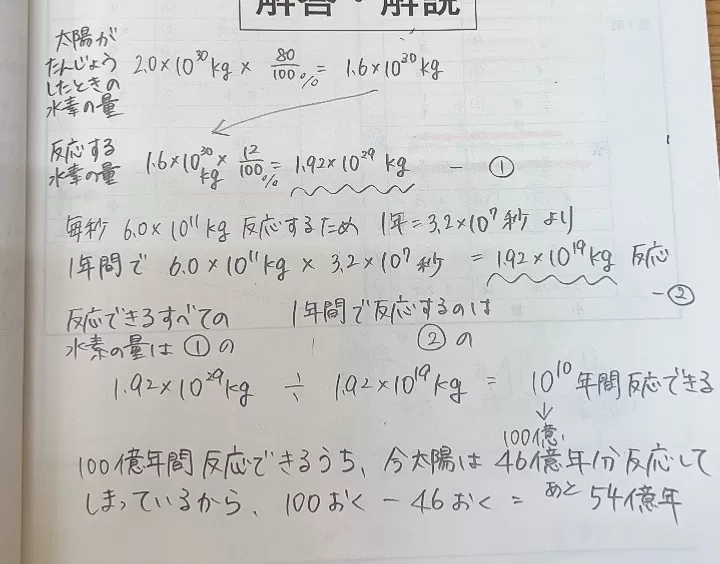 解答・解説
太陽が
たんじょう
したときの
水素の量
2.0×10³⁰kg × 80/100% = 1.6×10³⁰kg
反応する
水素の量
1.6×10³⁰kg × 12/100% = 1.92×10²⁹kg ー ①
毎秒 6.0×10¹¹kg 反応するため 1年=3.2×10⁷秒 より
1年間で 6.0×10¹¹kg × 3.2×10⁷秒 = 1.92×10¹⁹kg 反応
ー②
反応できるすべての
水素の量は①の
1年間で反応するのは
②の
1.92×10²⁹kg ÷ 1.92×10¹⁹kg = 10¹⁰年間反応できる
↓
100億
100億年間反応できるうち、今太陽は46億年分反応して
しまっているから、100おく − 46おく = あと 54億年